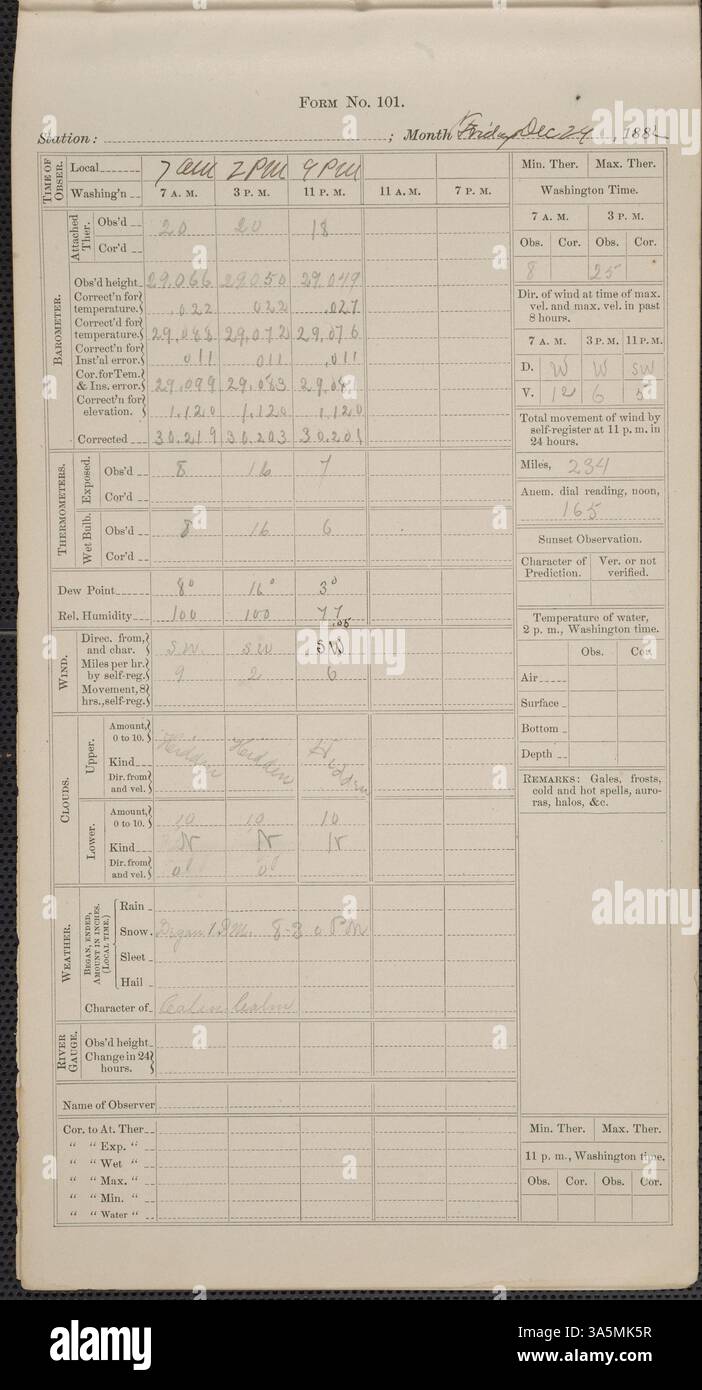 FORM NO. 101.
Station: ; Month Friday Dec 24, 188
TIME OF OBSER.
Local 7 am 2 PM 9 PM
Washing'n 7 A. M. 3 P. M. 11 P. M. 11 A. M. 7 P. M.
BAROMETER.
Attached Ther.
Obs'd 20 20 18
Cor'd
Obs'd height 29.066 29.050 29.049
Correct'n for temperature. .022 022 .027
Correct'd for temperature. 29.088 29.072 29.076
Correct'n for Inst'al error. 011 011 .011
Cor. for Tem. & Ins. error. 29.099 29.083 29.0
Correct'n for elevation. 1.120 1.120 1.120
Corrected 30.219 30.203 30.201
THERMOMETERS.
Exposed.
Obs'd 8 16 7
Cor'd
Wet Bulb.
Obs'd 8 16 6
Cor'd
Dew Point 8° 16° 3°
Rel. Humidity 100 100 77
.05
WIND.
Direc. from, and char. SW. SW SW
Miles per hr. by self-reg. 9 2 6
Movement, 8 hrs., self-reg.
CLOUDS.
Upper.
Amount, 0 to 10.
Hidden Hidden Hidden
Kind
Dir. from and vel.
Lower.
Amount, 0 to 10. 10 10 10
Kind N N N
Dir. from and vel. 0 0
WEATHER.
BEGAN, ENDED, AMOUNT IN INCHES. (LOCAL TIME.)
Rain
Snow. Began 1 P.M. 8-30 PM
Sleet
Hail
Character of Calm Calm
RIVER GAUGE.
Obs'd height
Change in 24 hours.
Name of Observer
Cor. to At. Ther
" " Exp. "
" " Wet "
" " Max. "
" " Min. "
" " Water "
Min. Ther. Max. Ther.
Washington Time.
7 A. M. 3 P. M.
Obs. Cor. Obs. Cor.
8 25
Dir. of wind at time of max. vel. and max. vel. in past 8 hours.
7 A. M. 3 P.M. 11 P.M.
D. W W SW
V. 12 6
Total movement of wind by self-register at 11 p. m. in 24 hours.
Miles, 234
Anem. dial reading, noon,
165
Sunset Observation.
Character of Prediction. Ver. or not verified.
Temperature of water, 2 p. m., Washington time.
Obs. Cor.
Air
Surface
Bottom
Depth
REMARKS: Gales, frosts, cold and hot spells, auroras, halos, &c.
Min. Ther. Max. Ther.
11 p. m., Washington time.
Obs. Cor. Obs. Cor.
alamy
a
alamy
Image ID: 3A5MK5R
www.alamy.com